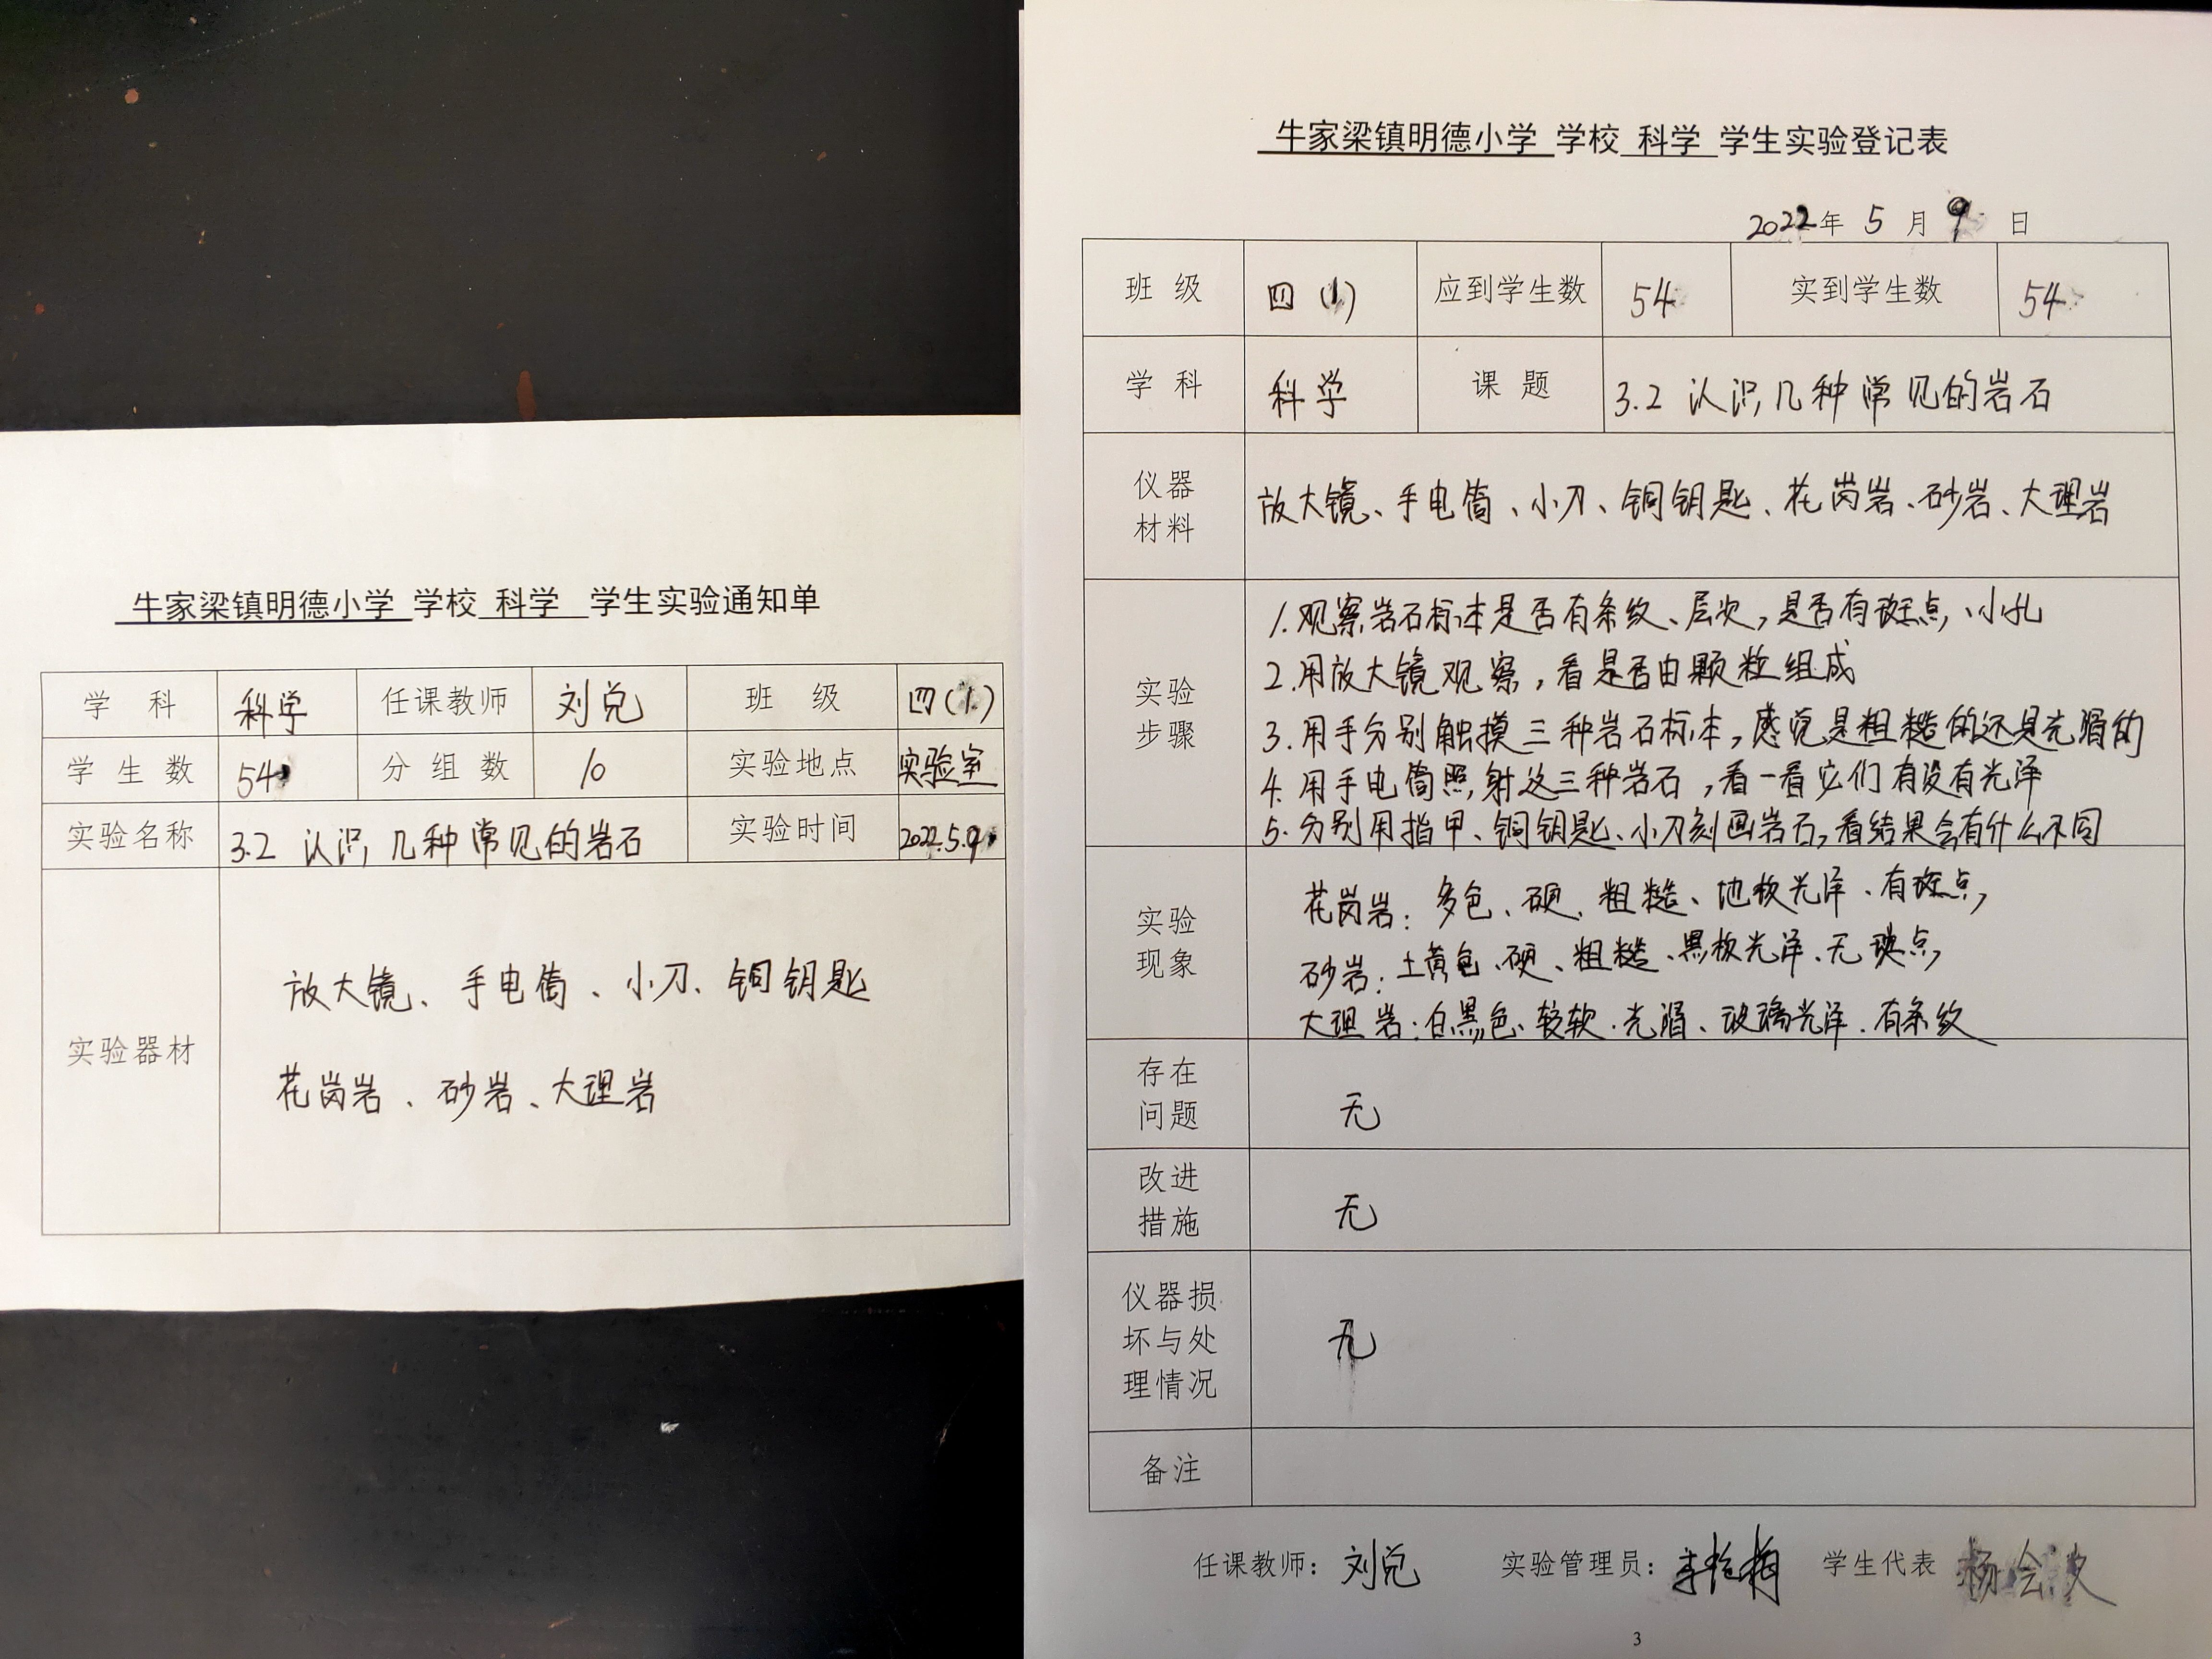 牛家梁镇明德小学 学校 科学 学生实验通知单
学 科 科学 任课教师 刘兑 班 级 四(1)
学 生 数 54 分 组 数 10 实验地点 实验室
实验名称 3.2 认识几种常见的岩石 实验时间 2022.5.9
实验器材
放大镜、手电筒、小刀、铜钥匙
花岗岩、砂岩、大理岩
牛家梁镇明德小学 学校 科学 学生实验登记表
2022年 5 月 9 日
班 级 四(1) 应到学生数 54 实到学生数 54
学 科 科学 课 题 3.2 认识几种常见的岩石
仪器
材料
放大镜、手电筒、小刀、铜钥匙、花岗岩、砂岩、大理岩
实验
步骤
1.观察岩石标本是否有条纹、层次,是否有斑点、小孔
2.用放大镜观察,看是否由颗粒组成
3.用手分别触摸三种岩石标本,感觉是粗糙的还是光滑的
4.用手电筒照射这三种岩石,看一看它们有没有光泽
5.分别用指甲、铜钥匙、小刀刻画岩石,看结果会有什么不同
实验
现象
花岗岩:多色、硬、粗糙、地板光泽、有斑点,
砂岩:土黄色、硬、粗糙、黑板光泽、无斑点,
大理岩:白黑色、较软、光滑、玻璃光泽、有条纹
存在
问题
无
改进
措施
无
仪器损
坏与处
理情况
无
备注
任课教师: 刘兑 实验管理员: 学生代表
3